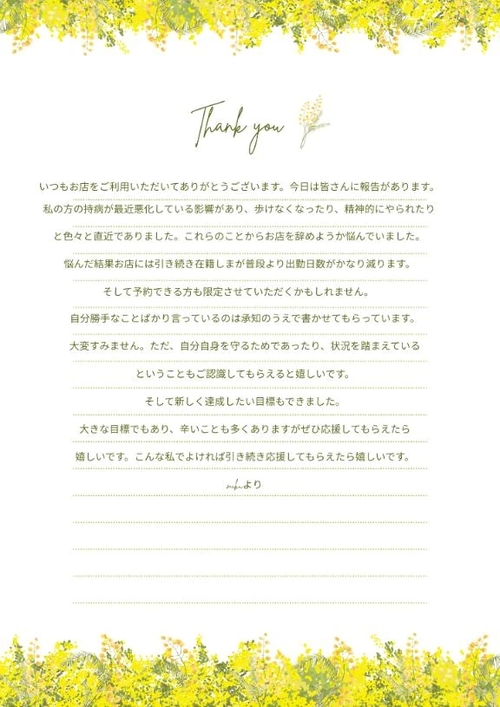 Thank you
いつもお店をご利用いただいてありがとうございます。今日は皆さんに報告があります。
私の方の持病が最近悪化している影響があり、歩けなくなったり、精神的にやられたり
と色々と直近でありました。これらのことからお店を辞めようか悩んでいました。
悩んだ結果お店には引き続き在籍しまが普段より出勤日数がかなり減ります。
そして予約できる方も限定させていただくかもしれません。
自分勝手なことばかり言っているのは承知のうえで書かせてもらっています。
大変すみません。ただ、自分自身を守るためであったり、状況を踏まえている
ということもご認識してもらえると嬉しいです。
そして新しく達成したい目標もできました。
大きな目標でもあり、辛いことも多くありますがぜひ応援してもらえたら
嬉しいです。こんな私でよければ引き続き応援してもらえたら嬉しいです。
より